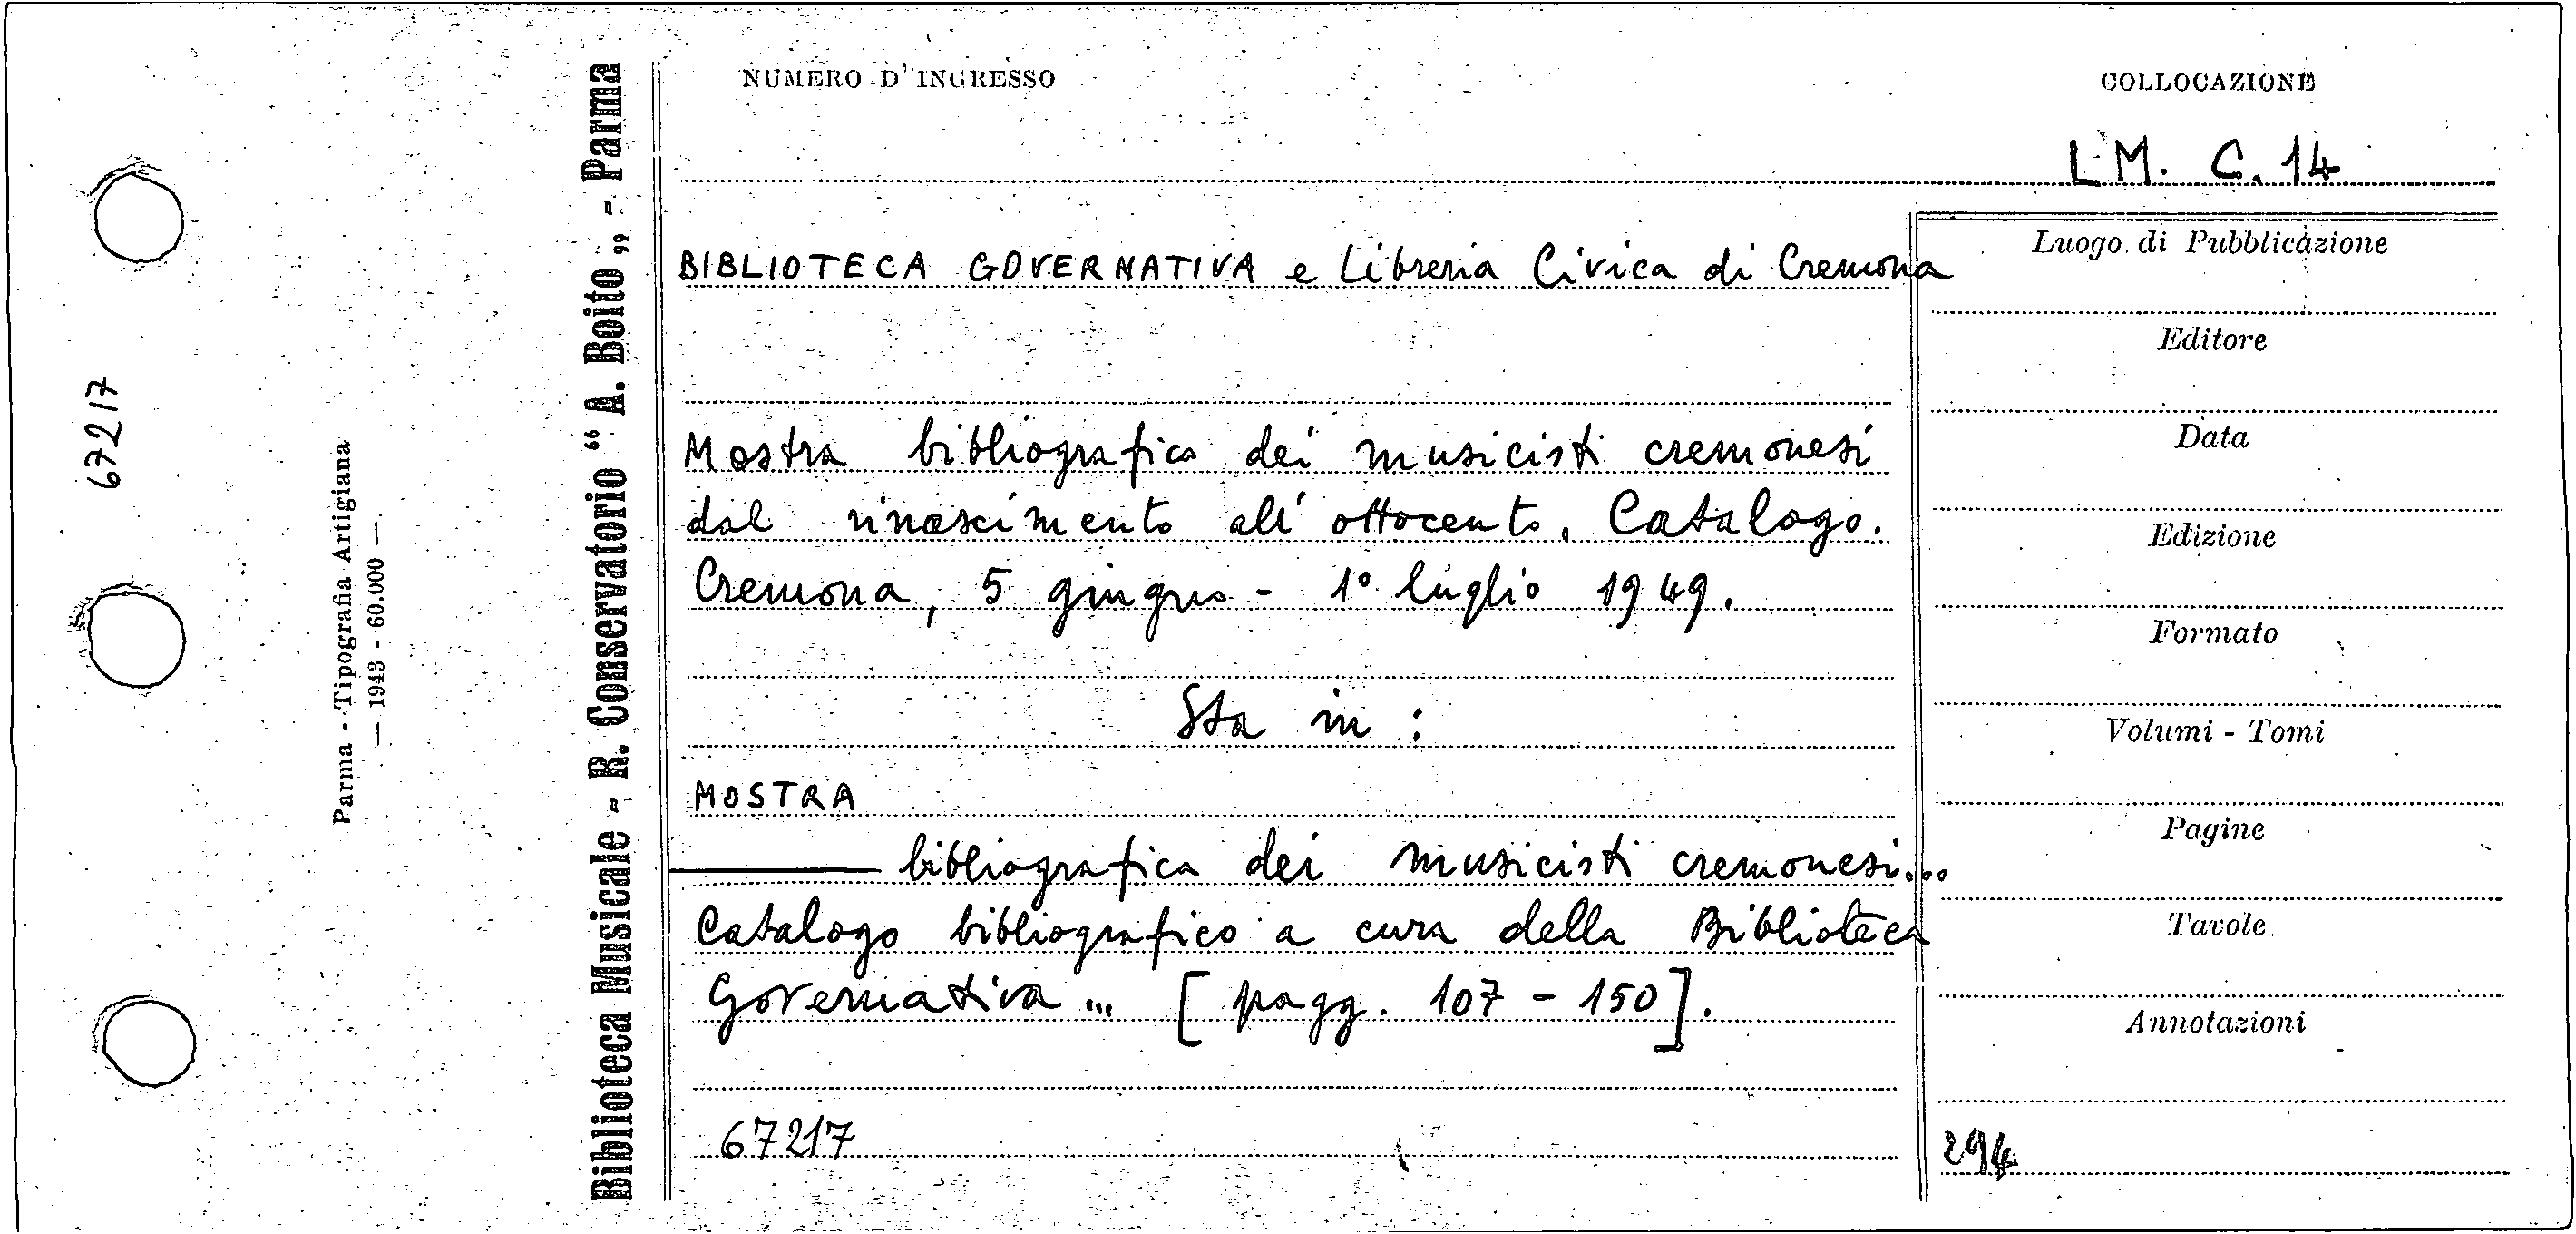 NUMERO D'INGRESSO
COLLOCAZIONE
LM. C. 14
BIBLIOTECA GOVERNATIVA e Libreria Civica di Cremona
Mostra bibliografica dei musicisti cremonesi
dal rinascimento all'ottocento. Catalogo.
Cremona, 5 giugno - 1° luglio 1949.
Sta in :
MOSTRA
——— bibliografica dei musicisti cremonesi...
Catalogo bibliografico a cura della Biblioteca
Governativa ... [pagg. 107 - 150].
67217
Luogo di Pubblicazione
Editore
Data
Edizione
Formato
Volumi - Tomi
Pagine
Tavole
Annotazioni
294
Biblioteca Musicale - R. Conservatorio “A. Boito„ - Parma
Parma - Tipografia Artigiana
— 1943 - 60.000 —
67217